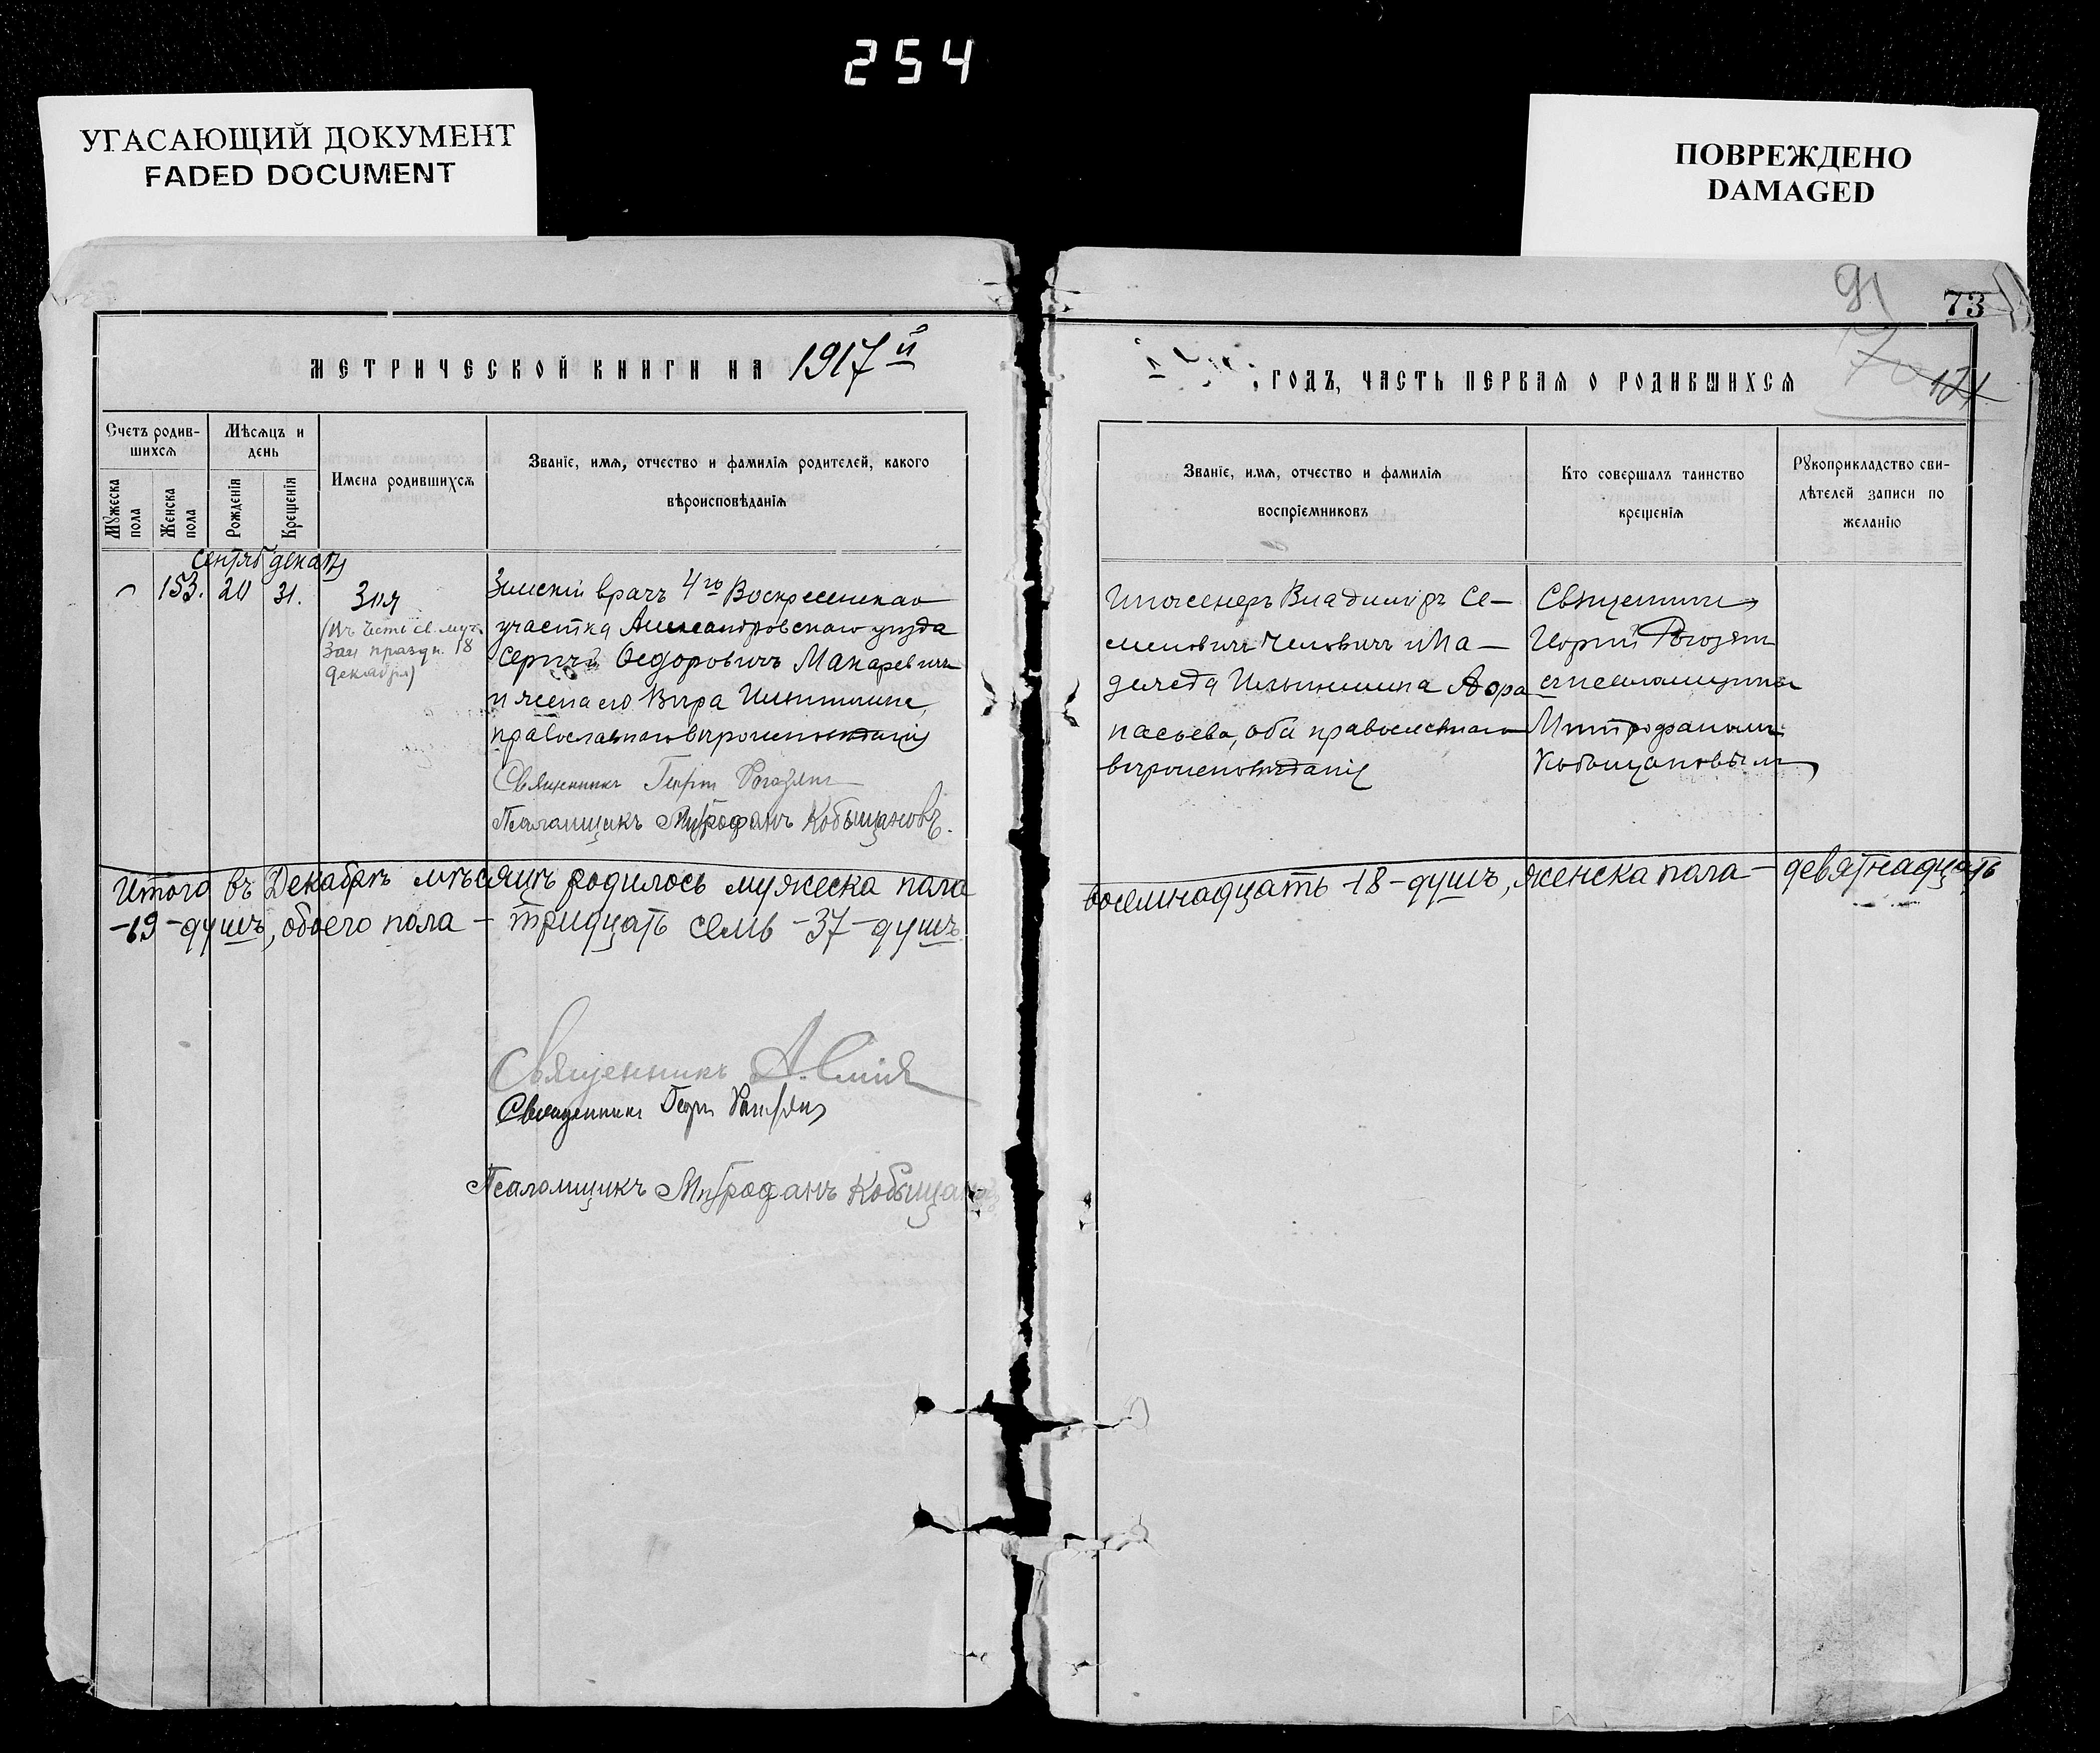 254
УГАСАЮЩИЙ ДОКУМЕНТ
FADED DOCUMENT
ПОВРЕЖДЕНО
DAMAGED
91
73
МЕТРИЧЕСКОЙ КНИГИ НА 1917й
ГОДЪ, ЧАСТЬ ПЕРВАЯ О РОДИВШИХСЯ
Счетъ родив-
шихся
Мѣсяцъ и
день
Имена родившихся
Званіе, имя, отчество и фамилія родителей, какого
вѣроисповѣданія
Мужеска
пола
Женска
пола
Рожденія
Крещенія
Званіе, имя, отчество и фамилія
воспріемниковъ
Кто совершалъ таинство
крещенія
Рукоприкладство сви-
дѣтелей записи по
желанію
Сентяб декаб
153. 20 31.
Зоя
(въ честь св. муч.
Зои празdн. 18
декабря)
Земскій врачъ 4го Воскресенскаго
участка Александровскаго уѣзда
Сергѣй Ѳедоровичъ Макаревичъ
и жена его Вѣра Ильинична,
православнаго вѣроисповѣданія
Священникъ Георгій Рогозянъ
Псаломщикъ Митрофанъ Кобыщановъ.
Инженеръ Владиміръ Се-
меновичъ и Ма-
Ильинична
насьева, оба православнаго
вѣроисповѣданія
Священникъ
Георгій Рогозянъ
съ псаломщикомъ
Митрофаномъ
Кобыщановымъ
Итого въ Декабрѣ мѣсяцѣ родилось мужеска пола
восемнадцать -18- душъ, женска пола - девятнадцать
-19- душъ, обоего пола - тридцать семь -37- душъ
Священникъ А.
Священникъ Георг Рогозянъ
Псаломщикъ Митрофанъ Кобыщановъ